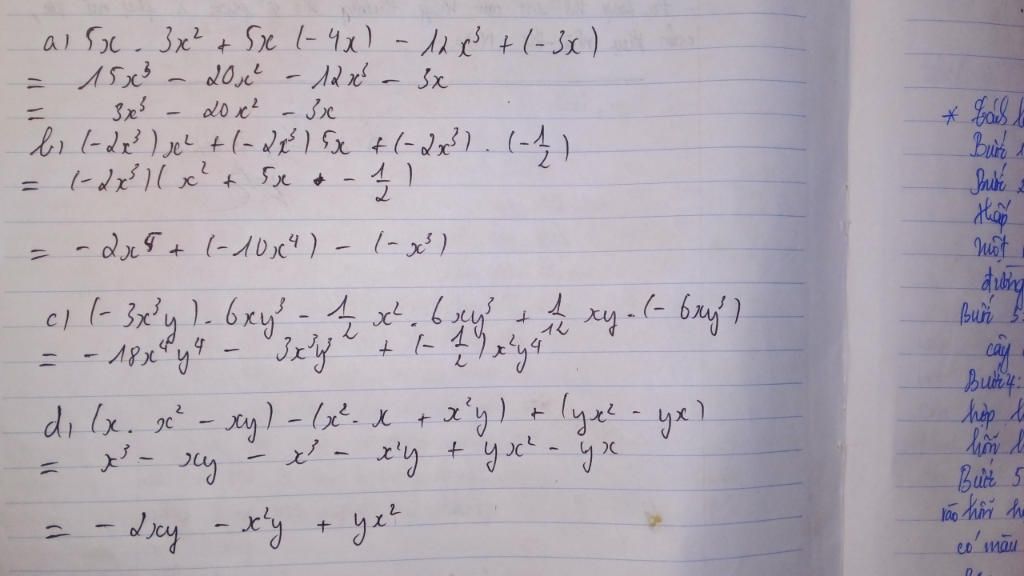 a) 5x . 3x² + 5x (-4x) - 12x³ + (-3x)
= 15x³ - 20x² - 12x³ - 3x
= 3x³ - 20x² - 3x
b) (-2x³)x² + (-2x³)5x + (-2x³) . (-1/2)
= (-2x³)(x² + 5x - 1/2)
= -2x⁵ + (-10x⁴) - (-x³)
c) (-3x³y) . 6xy³ - 1/2 x² . 6xy³ + 1/12 xy . (-6xy³)
= -18x⁴y⁴ - 3x³y³ + (-1/2)x²y⁴
d) (x . x² - xy) - (x² . x + x²y) + (yx² - yx)
= x³ - xy - x³ - x²y + yx² - yx
= -2xy - x²y + yx²
* Tách
Bước 1
Bước 2
Hấp
một
đường
Bước 3:
cây
Bước 4:
hợp
hỗn
Bước 5
vào hỗn
có màu